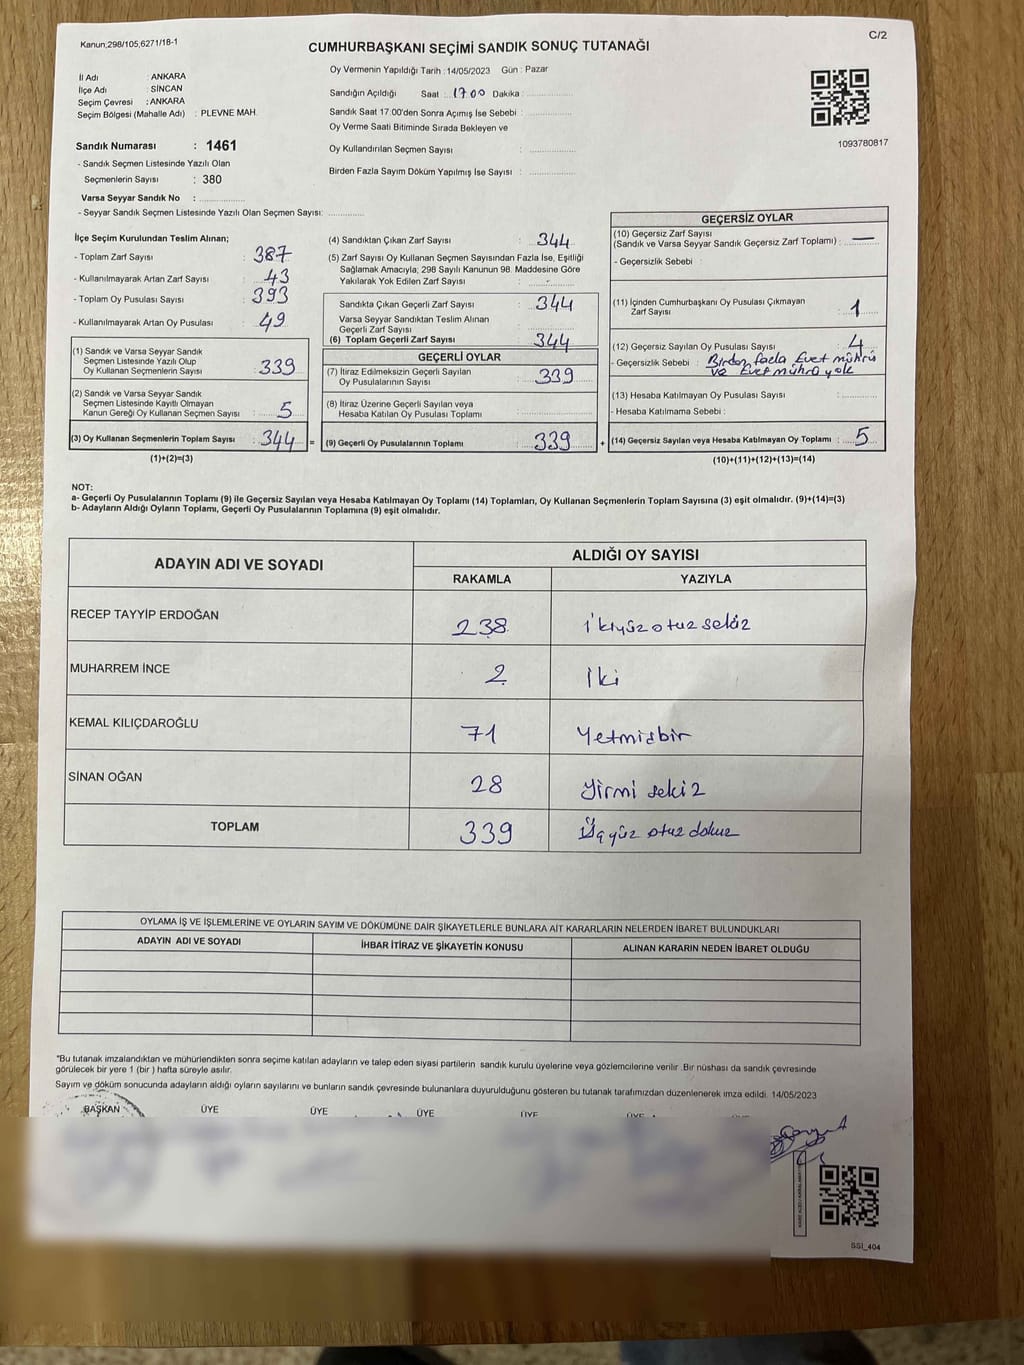 Kanun;298/105,6271/18-1
C/2
CUMHURBAŞKANI SEÇİMİ SANDIK SONUÇ TUTANAĞI
İl Adı : ANKARA
İlçe Adı : SİNCAN
Seçim Çevresi : ANKARA
Seçim Bölgesi (Mahalle Adı) : PLEVNE MAH.
Sandık Numarası : 1461
- Sandık Seçmen Listesinde Yazılı Olan
Seçmenlerin Sayısı : 380
Varsa Seyyar Sandık No :
- Seyyar Sandık Seçmen Listesinde Yazılı Olan Seçmen Sayısı:
Oy Vermenin Yapıldığı Tarih : 14/05/2023 Gün : Pazar
Sandığın Açıldığı Saat : 17 00 Dakika :
Sandık Saat 17:00'den Sonra Açımış İse Sebebi :
Oy Verme Saati Bitiminde Sırada Bekleyen ve
Oy Kullandırılan Seçmen Sayısı :
Birden Fazla Sayım Döküm Yapılmış İse Sayısı :
1093780817
İlçe Seçim Kurulundan Teslim Alınan;
- Toplam Zarf Sayısı : 387
- Kullanılmayarak Artan Zarf Sayısı : 43
- Toplam Oy Pusulası Sayısı : 393
- Kullanılmayarak Artan Oy Pusulası : 49
(1) Sandık ve Varsa Seyyar Sandık
Seçmen Listesinde Yazılı Olup
Oy Kullanan Seçmenlerin Sayısı : 339
(2) Sandık ve Varsa Seyyar Sandık
Seçmen Listesinde Kayıtlı Olmayan
Kanun Gereği Oy Kullanan Seçmen Sayısı : 5
(3) Oy Kullanan Seçmenlerin Toplam Sayısı : 344 =
(1)+(2)=(3)
(4) Sandıktan Çıkan Zarf Sayısı : 344
(5) Zarf Sayısı Oy Kullanan Seçmen Sayısından Fazla İse, Eşitliği
Sağlamak Amacıyla; 298 Sayılı Kanunun 98. Maddesine Göre
Yakılarak Yok Edilen Zarf Sayısı : -
Sandıkta Çıkan Geçerli Zarf Sayısı : 344
Varsa Seyyar Sandıktan Teslim Alınan
Geçerli Zarf Sayısı :
(6) Toplam Geçerli Zarf Sayısı : 344
GEÇERLİ OYLAR
(7) İtiraz Edilmeksizin Geçerli Sayılan
Oy Pusulalarının Sayısı : 339
(8) İtiraz Üzerine Geçerli Sayılan veya
Hesaba Katılan Oy Pusulası Toplamı :
(9) Geçerli Oy Pusulalarının Toplamı : 339 +
GEÇERSİZ OYLAR
(10) Geçersiz Zarf Sayısı
(Sandık ve Varsa Seyyar Sandık Geçersiz Zarf Toplamı) : —
- Geçersizlik Sebebi :
(11) İçinden Cumhurbaşkanı Oy Pusulası Çıkmayan
Zarf Sayısı : 1
(12) Geçersiz Sayılan Oy Pusulası Sayısı : 4
- Geçersizlik Sebebi : Birden fazla Evet mührü
ve Evet mührü yok
(13) Hesaba Katılmayan Oy Pusulası Sayısı :
- Hesaba Katılmama Sebebi :
(14) Geçersiz Sayılan veya Hesaba Katılmayan Oy Toplamı : 5
(10)+(11)+(12)+(13)=(14)
NOT:
a- Geçerli Oy Pusulalarının Toplamı (9) ile Geçersiz Sayılan veya Hesaba Katılmayan Oy Toplamı (14) Toplamları, Oy Kullanan Seçmenlerin Toplam Sayısına (3) eşit olmalıdır. (9)+(14)=(3)
b- Adayların Aldığı Oyların Toplamı, Geçerli Oy Pusulalarının Toplamına (9) eşit olmalıdır.
ADAYIN ADI VE SOYADI
ALDIĞI OY SAYISI
RAKAMLA YAZIYLA
RECEP TAYYİP ERDOĞAN 238 ikiyüz otuz sekiz
MUHARREM İNCE 2 iki
KEMAL KILIÇDAROĞLU 71 Yetmişbir
SİNAN OĞAN 28 yirmi sekiz
TOPLAM 339 Üçyüz otuz dokuz
OYLAMA İŞ VE İŞLEMLERİNE VE OYLARIN SAYIM VE DÖKÜMÜNE DAİR ŞİKAYETLERLE BUNLARA AİT KARARLARIN NELERDEN İBARET BULUNDUKLARI
ADAYIN ADI VE SOYADI İHBAR İTİRAZ VE ŞİKAYETİN KONUSU ALINAN KARARIN NEDEN İBARET OLDUĞU
*Bu tutanak imzalandıktan ve mühürlendikten sonra seçime katılan adayların ve talep eden siyasi partilerin sandık kurulu üyelerine veya gözlemcilerine verilir. Bir nüshası da sandık çevresinde
görülecek bir yere 1 (bir ) hafta süreyle asılır.
Sayım ve döküm sonucunda adayların aldığı oyların sayılarını ve bunların sandık çevresinde bulunanlara duyurulduğunu gösteren bu tutanak tarafımızdan düzenlenerek imza edildi. 14/05/2023
BAŞKAN ÜYE ÜYE ÜYE ÜYE ÜYE
SSİ_404